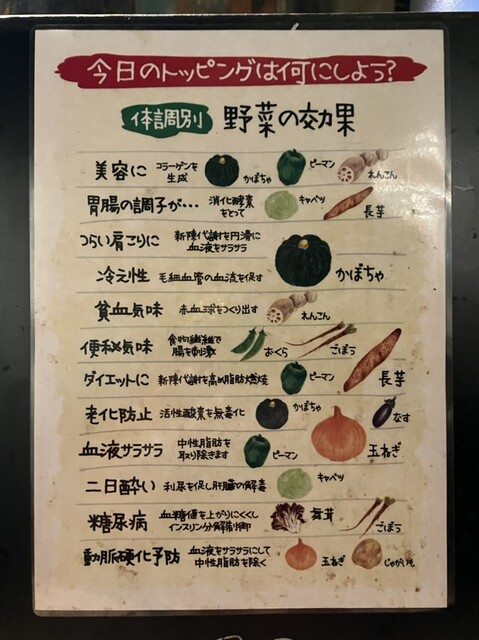 今日のトッピングは何にしよう?
体調別 野菜の効果
美容に コラーゲンを生成 かぼちゃ ピーマン れんこん
胃腸の調子が… 消化酵素をとって キャベツ 長芋
つらい肩こりに 新陳代謝を円滑に血液をサラサラ
冷え性 毛細血管の血流を促す かぼちゃ
貧血気味 赤血球をつくり出す れんこん
便秘気味 食物繊維で腸を刺激 おくら ごぼう
ダイエットに 新陳代謝を高め脂肪燃焼 ピーマン 長芋
老化防止 活性酸素を無毒化 かぼちゃ なす
血液サラサラ 中性脂肪を取り除きます ピーマン 玉ねぎ
二日酔い 利尿を促し肝臓の解毒 キャベツ
糖尿病 血糖値を上がりにくくしインスリン分解制御 舞茸 ごぼう
動脈硬化予防 血液をサラサラにして中性脂肪を除く 玉ねぎ じゃがいも